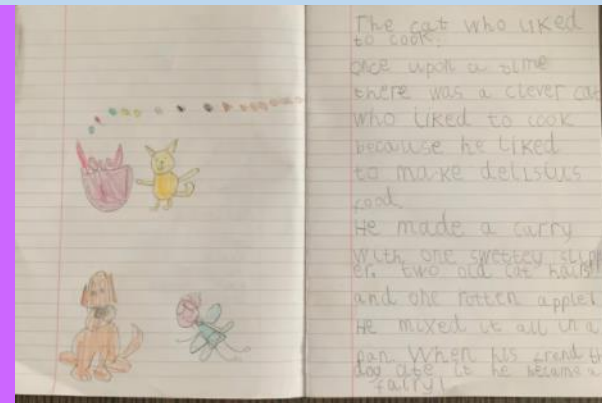 The cat who liked
to cook.
once upon a time
there was a clever cat
who liked to cook
because he liked
to make delisius
food
He made a curry
with one swettey slipp
er, two old cat hairs
and one rotten apple!
He mixed it all in a
pan. When his frend th
dog ate it he became a
fairy!